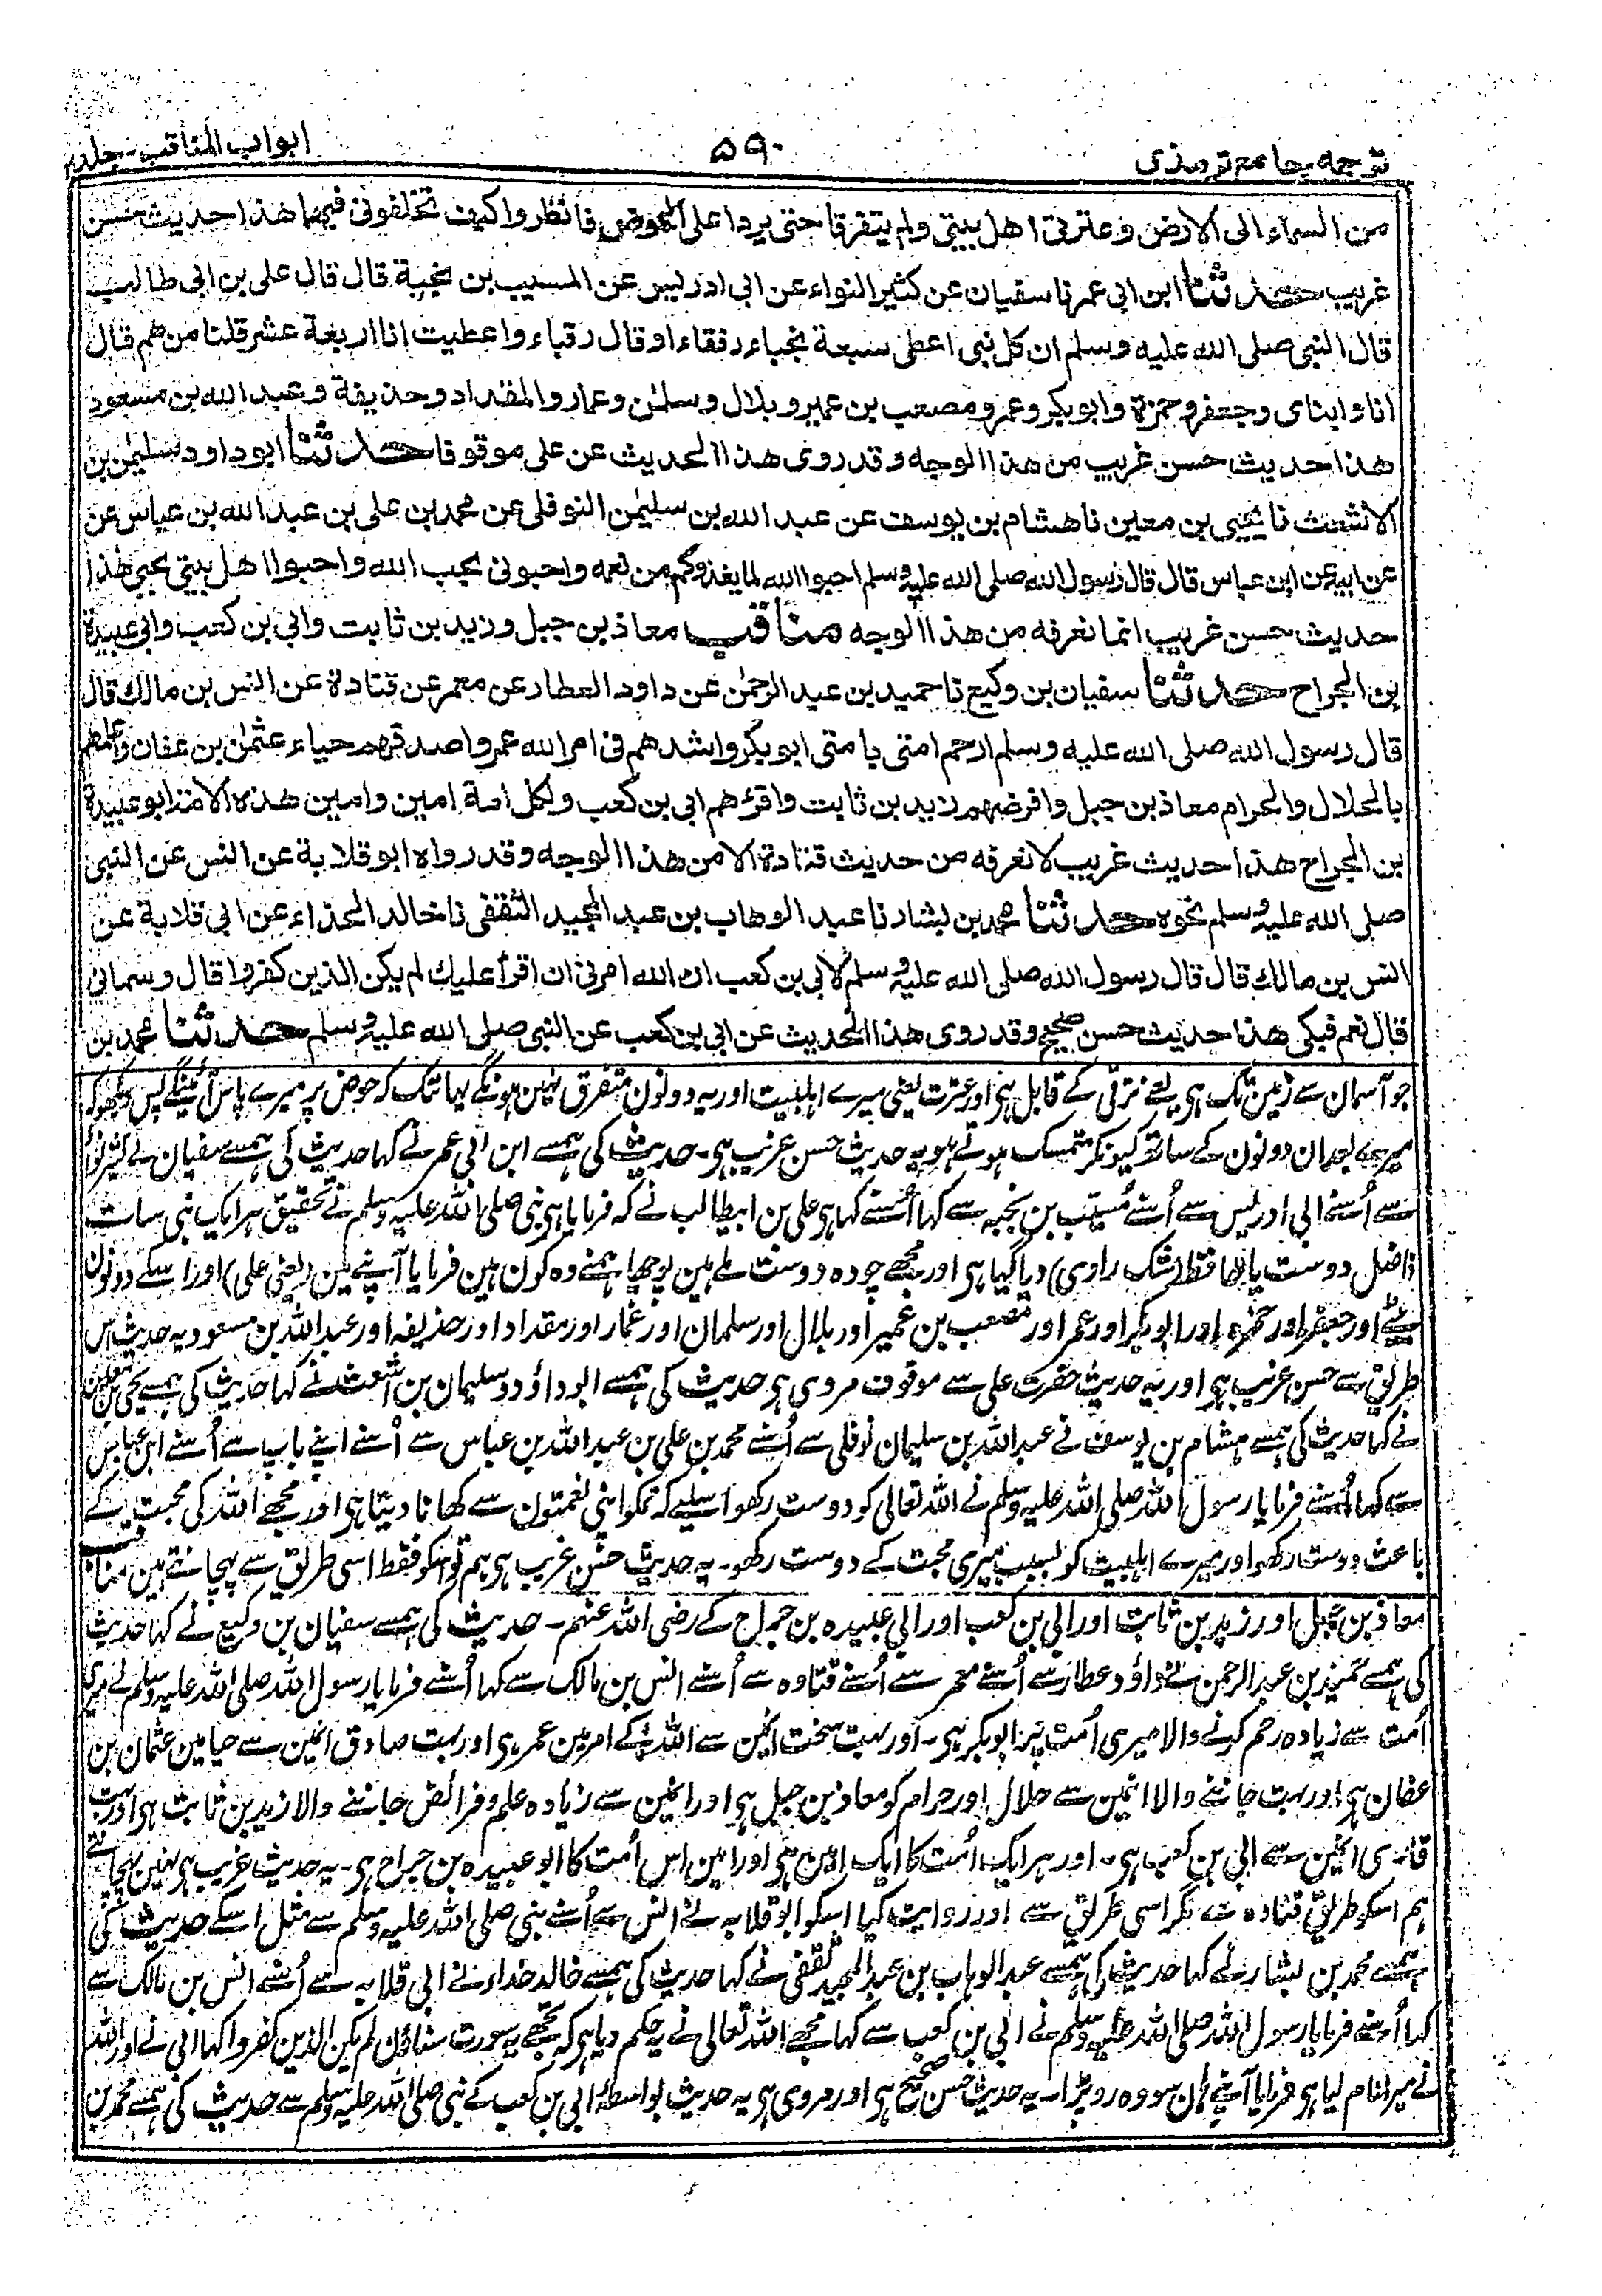 ترجمہ جامع ترمذی
۵۹۰
ابواب المناقب - جلد
من السماء الى الارض وعترتی اهل بيتی ولم يتفرقا حتی يردا علی الحوض فانظروا كيف تخلفونی فيهما هذا حديث حسن
غريب حدثنا ابن ابی عمر نا سفيان عن كثير النواء عن ابی ادريس عن المسيب بن نجبة قال قال علی بن ابی طالب
قال النبی صلی الله عليه وسلم ان كل نبی اعطی سبعة نجباء رفقاء او قال رقباء واعطيت انا اربعة عشر قلنا من هم قال
انا وابنای وجعفر وحمزة وابو بكر وعمر ومصعب بن عمير وبلال وسلمٰن وعمار والمقداد وحذيفة وعبد الله بن مسعود
هذا حديث حسن غريب من هذا الوجه وقد روی هذا الحديث عن علی موقوفا حدثنا ابو داود سليمٰن بن
الاشعث نا يحيی بن معين نا هشام بن يوسف عن عبد الله بن سليمٰن النوفلی عن محمد بن علی بن عبد الله بن عباس عن
عن ابيه عن ابن عباس قال قال رسول الله صلی الله عليه وسلم احبوا الله لما يغذوكم من نعمه واحبونی بحب الله واحبوا اهل بيتی بحبی هذا
حديث حسن غريب انما نعرفه من هذا الوجه مناقب معاذ بن جبل وزيد بن ثابت وابی بن كعب وابی عبيدة
بن الجراح حدثنا سفيان بن وكيع نا حميد بن عبد الرحمٰن عن داود العطار عن معمر عن قتادة عن انس بن مالك قال
قال رسول الله صلی الله عليه وسلم ارحم امتی بامتی ابو بكر واشدهم فی امر الله عمر واصدقهم حياء عثمٰن بن عفان واعلمهم
بالحلال والحرام معاذ بن جبل وافرضهم زيد بن ثابت واقرئهم ابی بن كعب ولكل امة امين وامين هذه الامة ابو عبيدة
بن الجراح هذا حديث غريب لا نعرفه من حديث قتادة الا من هذا الوجه وقد رواه ابو قلابة عن انس عن النبی
صلی الله عليه وسلم نحوه حدثنا محمد بن بشار نا عبد الوهاب بن عبد المجيد الثقفی نا خالد الحذاء عن ابی قلابة عن
انس بن مالك قال قال رسول الله صلی الله عليه وسلم لابی بن كعب ان الله امرنی ان اقرأ عليك لم يكن الذين كفروا قال وسمانی
قال نعم فبكی هذا حديث حسن صحيح وقد روی هذا الحديث عن ابی بن كعب عن النبی صلی الله عليه وسلم حدثنا محمد بن
جو آسمان سے زمین تک ہی یعنے ترقی کے قابل ہی اور عترت یعنی میرے اہلبیت اور یہ دونون متفرق نہین ہونگے یہانتک کہ حوض پر میرے پاس آئینگے پس دیکھو کہ
میرے بعد ان دونون کے ساتھ کیونکر متمسک ہوتے ہو یہ حدیث حسن غریب ہی - حدیث کی ہمسے ابن ابی عمر نے کہا حدیث کی ہمسے سفیان نے کثیر نواء
سے اُسنے ابی ادریس سے اُسنے مُسیّب بن نجبہ سے کہا اُسنے کہا ہی علی بن ابیطالب نے کہ فرمایا ہی نبی صلی اللہ علیہ وسلم نے تحقیق ہر ایک نبی سات
فاضل دوست یا محافظ (شک راوی) دیا گیا ہی اور مجھے چودہ دوست ملے ہین پوچھا ہمنے وہ کون ہین فرمایا آپنے مین (یعنی علی) اور اسکے دونون
بیٹے اور جعفر اور حمزہ اور ابوبکر اور عمر اور مصعب بن عمیر اور بلال اور سلمان اور عمار اور مقداد اور حذیفہ اور عبداللہ بن مسعود یہ حدیث اس
طریق سے حسن غریب ہی اور یہ حدیث حضرت علی سے موقوف مروی ہی حدیث کی ہمسے ابو داؤد سلیمان بن اشعث نے کہا حدیث کی ہمسے یحیی بن معین
نے کہا حدیث کی ہمسے ہشام بن یوسف نے عبداللہ بن سلیمان نوفلی سے اُسنے محمد بن علی بن عبداللہ بن عباس سے اُسنے اپنے باپ سے اُسنے ابن عباس
سے کہا اُسنے فرمایا رسول اللہ صلی اللہ علیہ وسلم نے اللہ تعالی کو دوست رکھو اسلیے کہ تمکو اپنی نعمتون سے کھانا دیتا ہی اور مجھے اللہ کی محبت کے
باعث دوست رکھو اور میرے اہلبیت کو بسبب میری محبت کے دوست رکھو - یہ حدیث حسن غریب ہی ہم تو اسکو فقط اسی طریق سے پہچانتے ہین مناقب
معاذ بن جبل اور زید بن ثابت اور ابی بن کعب اور ابی عبیدہ بن جراح کے رضی اللہ عنہم - حدیث کی ہمسے سفیان بن وکیع نے کہا حدیث
کی ہمسے حمید بن عبدالرحمن نے داؤد عطار سے اُسنے معمر سے اُسنے قتادہ سے اُسنے انس بن مالک سے کہا اُسنے فرمایا رسول اللہ صلی اللہ علیہ وسلم نے میری
اُمت سے زیادہ رحم کرنے والا میری اُمت پر ابوبکر ہی - اور بہت سخت انمین سے اللہ کے امر مین عمر ہی اور بہت صادق انمین سے حیا مین عثمان بن
عفان ہی اور بہت جاننے والا انمین سے حلال اور حرام کو معاذ بن جبل ہی اور انمین سے زیادہ علم و فرائض جاننے والا زید بن ثابت ہی اور بہت
قاری انمین سے ابی بن کعب ہی - اور ہر ایک اُمت کا ایک امین ہی اور امین اس اُمت کا ابو عبیدہ بن جراح ہی - یہ حدیث غریب ہی نہین پہچانتے
ہم اسکو طریق قتادہ سے مگر اسی طریق سے اور روایت کیا اسکو ابو قلابہ نے انس سے اُسنے نبی صلی اللہ علیہ وسلم سے مثل اسکے حدیث کی
ہمسے محمد بن بشار نے کہا حدیث کی ہمسے عبدالوہاب بن عبدالمجید ثقفی نے کہا حدیث کی ہمسے خالد حذاء نے ابی قلابہ سے اُسنے انس بن مالک سے
کہا اُسنے فرمایا رسول اللہ صلی اللہ علیہ وسلم نے ابی بن کعب سے کہا مجھے اللہ تعالی نے یہ حکم دیا ہی کہ تجھے یہ سورت سناؤن لم یکن الذین کفروا کہا ابی نے اور اللہ
نے میرا نام لیا ہی فرمایا آپنے ہان سو وہ رو پڑا - یہ حدیث حسن صحیح ہی اور مروی ہی یہ حدیث بواسطۂ ابی بن کعب کے نبی صلی اللہ علیہ وسلم سے حدیث کی ہمسے محمد بن